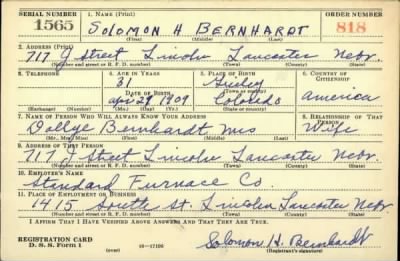 SERIAL NUMBER 1. NAME (Print) ORDER NUMBER
1565 SOLOMON H BERNHARDT 818
(First) (Middle) (Last)
2. ADDRESS (Print)
717 J Street Lincoln Lancaster Nebr.
(Number and street or R. F. D. number) (Town) (County) (State)
3. TELEPHONE 4. AGE IN YEARS 5. PLACE OF BIRTH 6. COUNTRY OF CITIZENSHIP
31
DATE OF BIRTH (Town or county)
Apr 29 1909 Colorado America
(Exchange) (Number) (Mo.) (Day) (Yr.) (State or country)
7. NAME OF PERSON WHO WILL ALWAYS KNOW YOUR ADDRESS 8. RELATIONSHIP OF THAT PERSON
Dollye Bernhardt Mrs Wife
(Mr., Mrs., Miss) (First) (Middle) (Last)
9. ADDRESS OF THAT PERSON
717 J Street Lincoln Lancaster Nebr.
(Number and street or R. F. D. number) (Town) (County) (State)
10. EMPLOYER'S NAME
Standard Furnace Co.
11. PLACE OF EMPLOYMENT OR BUSINESS
1415 South St. Lincoln Lancaster Nebr
(Number and street or R. F. D. number) (Town) (County) (State)
I AFFIRM THAT I HAVE VERIFIED ABOVE ANSWERS AND THAT THEY ARE TRUE.
REGISTRATION CARD
D. S. S. FORM 1 16—17105 Solomon H. Bernhardt
(Registrant's signature)